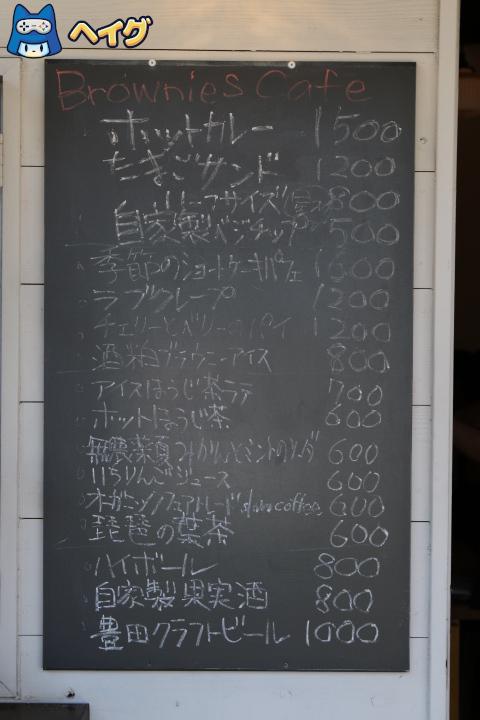 ヘイグ
Brownies Cafe
ホットカレー 1500
たまごサンド 1200
ハーフサイズ 800
自家製ベジチップ 500
季節のショートケーキパフェ 1600
ラブクレープ 1200
チェリーとベリーのパイ 1200
酒粕ブラウニーアイス 800
アイスほうじ茶ラテ 700
ホットほうじ茶 600
無農薬 ミントのソーダ 600
りんごジュース 600
オーガニックフェアトレード slow coffee 600
琵琶の葉茶 600
ハイボール 800
自家製果実酒 800
豊田クラフトビール 1000